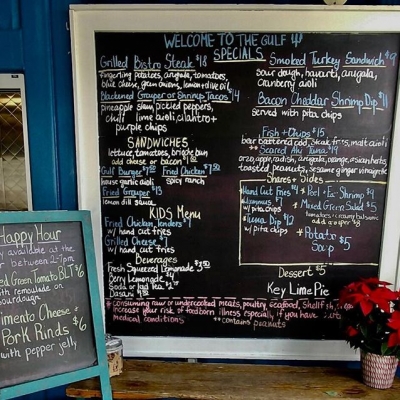 WELCOME TO THE GULF
SPECIALS
Grilled Bistro Steak $18
fingerling potatoes, arugala, tomatoes,
blue cheese, green onions, lemon + olive oil
Blackened Grouper or Shrimp Tacos $14
pineapple slaw, pickled peppers,
chili lime aioli, cilantro +
purple chips
SANDWICHES
lettuce, tomatoes, brioche bun
add cheese or bacon $1
Gulf Burger
house garlic aioli
Fried Chicken
spicy ranch
Fried Grouper $13
lemon dill sauce
KIDS MENU
Fried Chicken Tenders $7
w/ hand cut fries
Grilled Cheese $7
w/ hand cut fries
Beverages
Fresh Squeezed Lemonade
Berry Lemonade $4
Soda or Iced Tea
Dasani
Smoked Turkey Sandwich $9
sour dough, havarti, arugala,
cranberry aioli
Bacon Cheddar Shrimp Dip $11
served with pita chips
Fish + Chips $15
bar battered cod, steak fries, malt aioli
** Seared Ahi Tuna
orzo, apple, radish, arugala, orange, asian herbs,
toasted peanuts, sesame ginger vinegrette
Shares + Sides
Hand Cut Fries $4
Hummus $7
w/ pita chips
Tuna Dip $12
w/ pita chips
* Peel + Eat Shrimp $9
* Mixed Green Salad $5
tomatoes + creamy balsamic
add grouper $8
* Potato $5
Soup
Dessert $5
Key Lime Pie
* consuming raw or undercooked meats, poultry, seafood, shellfish,
increase your risk of foodborn illness especially, if you have
medical conditions
** contains peanuts
Happy Hour
available at the
bar between 2-7pm
Fried Green Tomato BLT $6
with remoulade on
sourdough
Pimento Cheese +
Pork Rinds $6
with pepper jelly